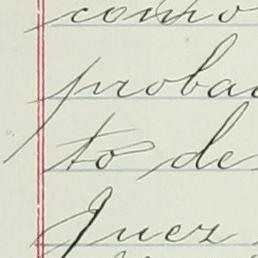 como
proba
to de
Juez